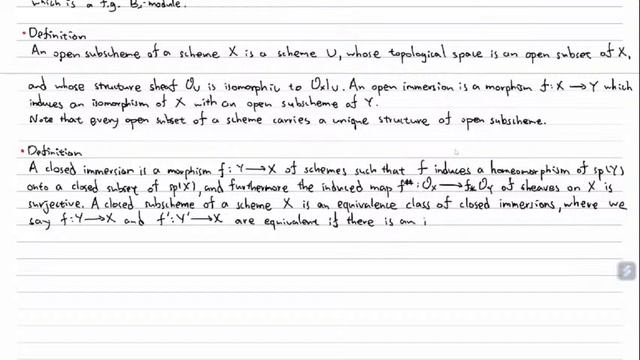 which is a f.g. Bᵢ-module.
• Definition
An open subscheme of a scheme X is a scheme U, whose topological space is an open subset of X,
and whose structure sheaf O_U is isomorphic to O_X|_U. An open immersion is a morphism f: X → Y which
induces an isomorphism of X with an open subscheme of Y.
Note that every open subset of a scheme carries a unique structure of open subscheme.
• Definition
A closed immersion is a morphism f: Y → X of schemes such that f induces a homeomorphism of sp(Y)
onto a closed subset of sp(X), and furthermore the induced map f^#: O_X → f_*O_Y of sheaves on X is
surjective. A closed subscheme of a scheme X is an equivalence class of closed immersions, where we
say f: Y → X and f': Y' → X are equivalent if there is an i